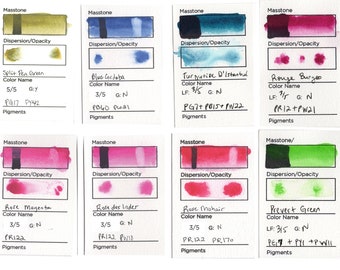 Masstone
Dispersion/Opacity
Color Name
3/5 G:Y
Pigments
Masstone
Dispersion/Opacity
Blue Cordoba
Color Name
3/5 G:N
Pigments
Masstone/
Dispersion/Opacity
Turquoise D'Istanbul
Color Name
LF: 3/5 G:N
PG17+PB15+PW22
Pigments
Masstone/
Dispersion/Opacity
Rouge Burgos
Color Name
LF: 3/5 G:N
PR12+PW21
Pigments
Masstone
Dispersion/Opacity
Rose Magenta
Color Name
3/5 G:N
PR122
Pigments
Masstone
Dispersion/Opacity
Color Name
3/5 G:N
PR122
Pigments
Masstone
Dispersion/Opacity
Rose Mohair
Color Name
3/5 G:N
PR122 PR170
Pigments
Masstone/
Dispersion/Opacity
Prevert Green
Color Name
LF: 3/5 G:N
Pigments